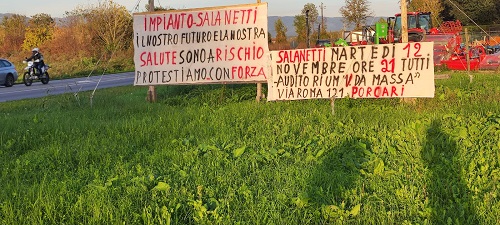 IMPIANTO-SALANETTI
iL NOSTRO FUTURO E LA NOSTRA
SALUTE SONO A RISCHIO
PROTESTIAMO.CON FORZA
SALANETTI MARTEDI 12
NOVEMBRE ORE 21 TUTTI
AUDITORIUM "V. DA MASSA"
VIA ROMA 121. PORCARI